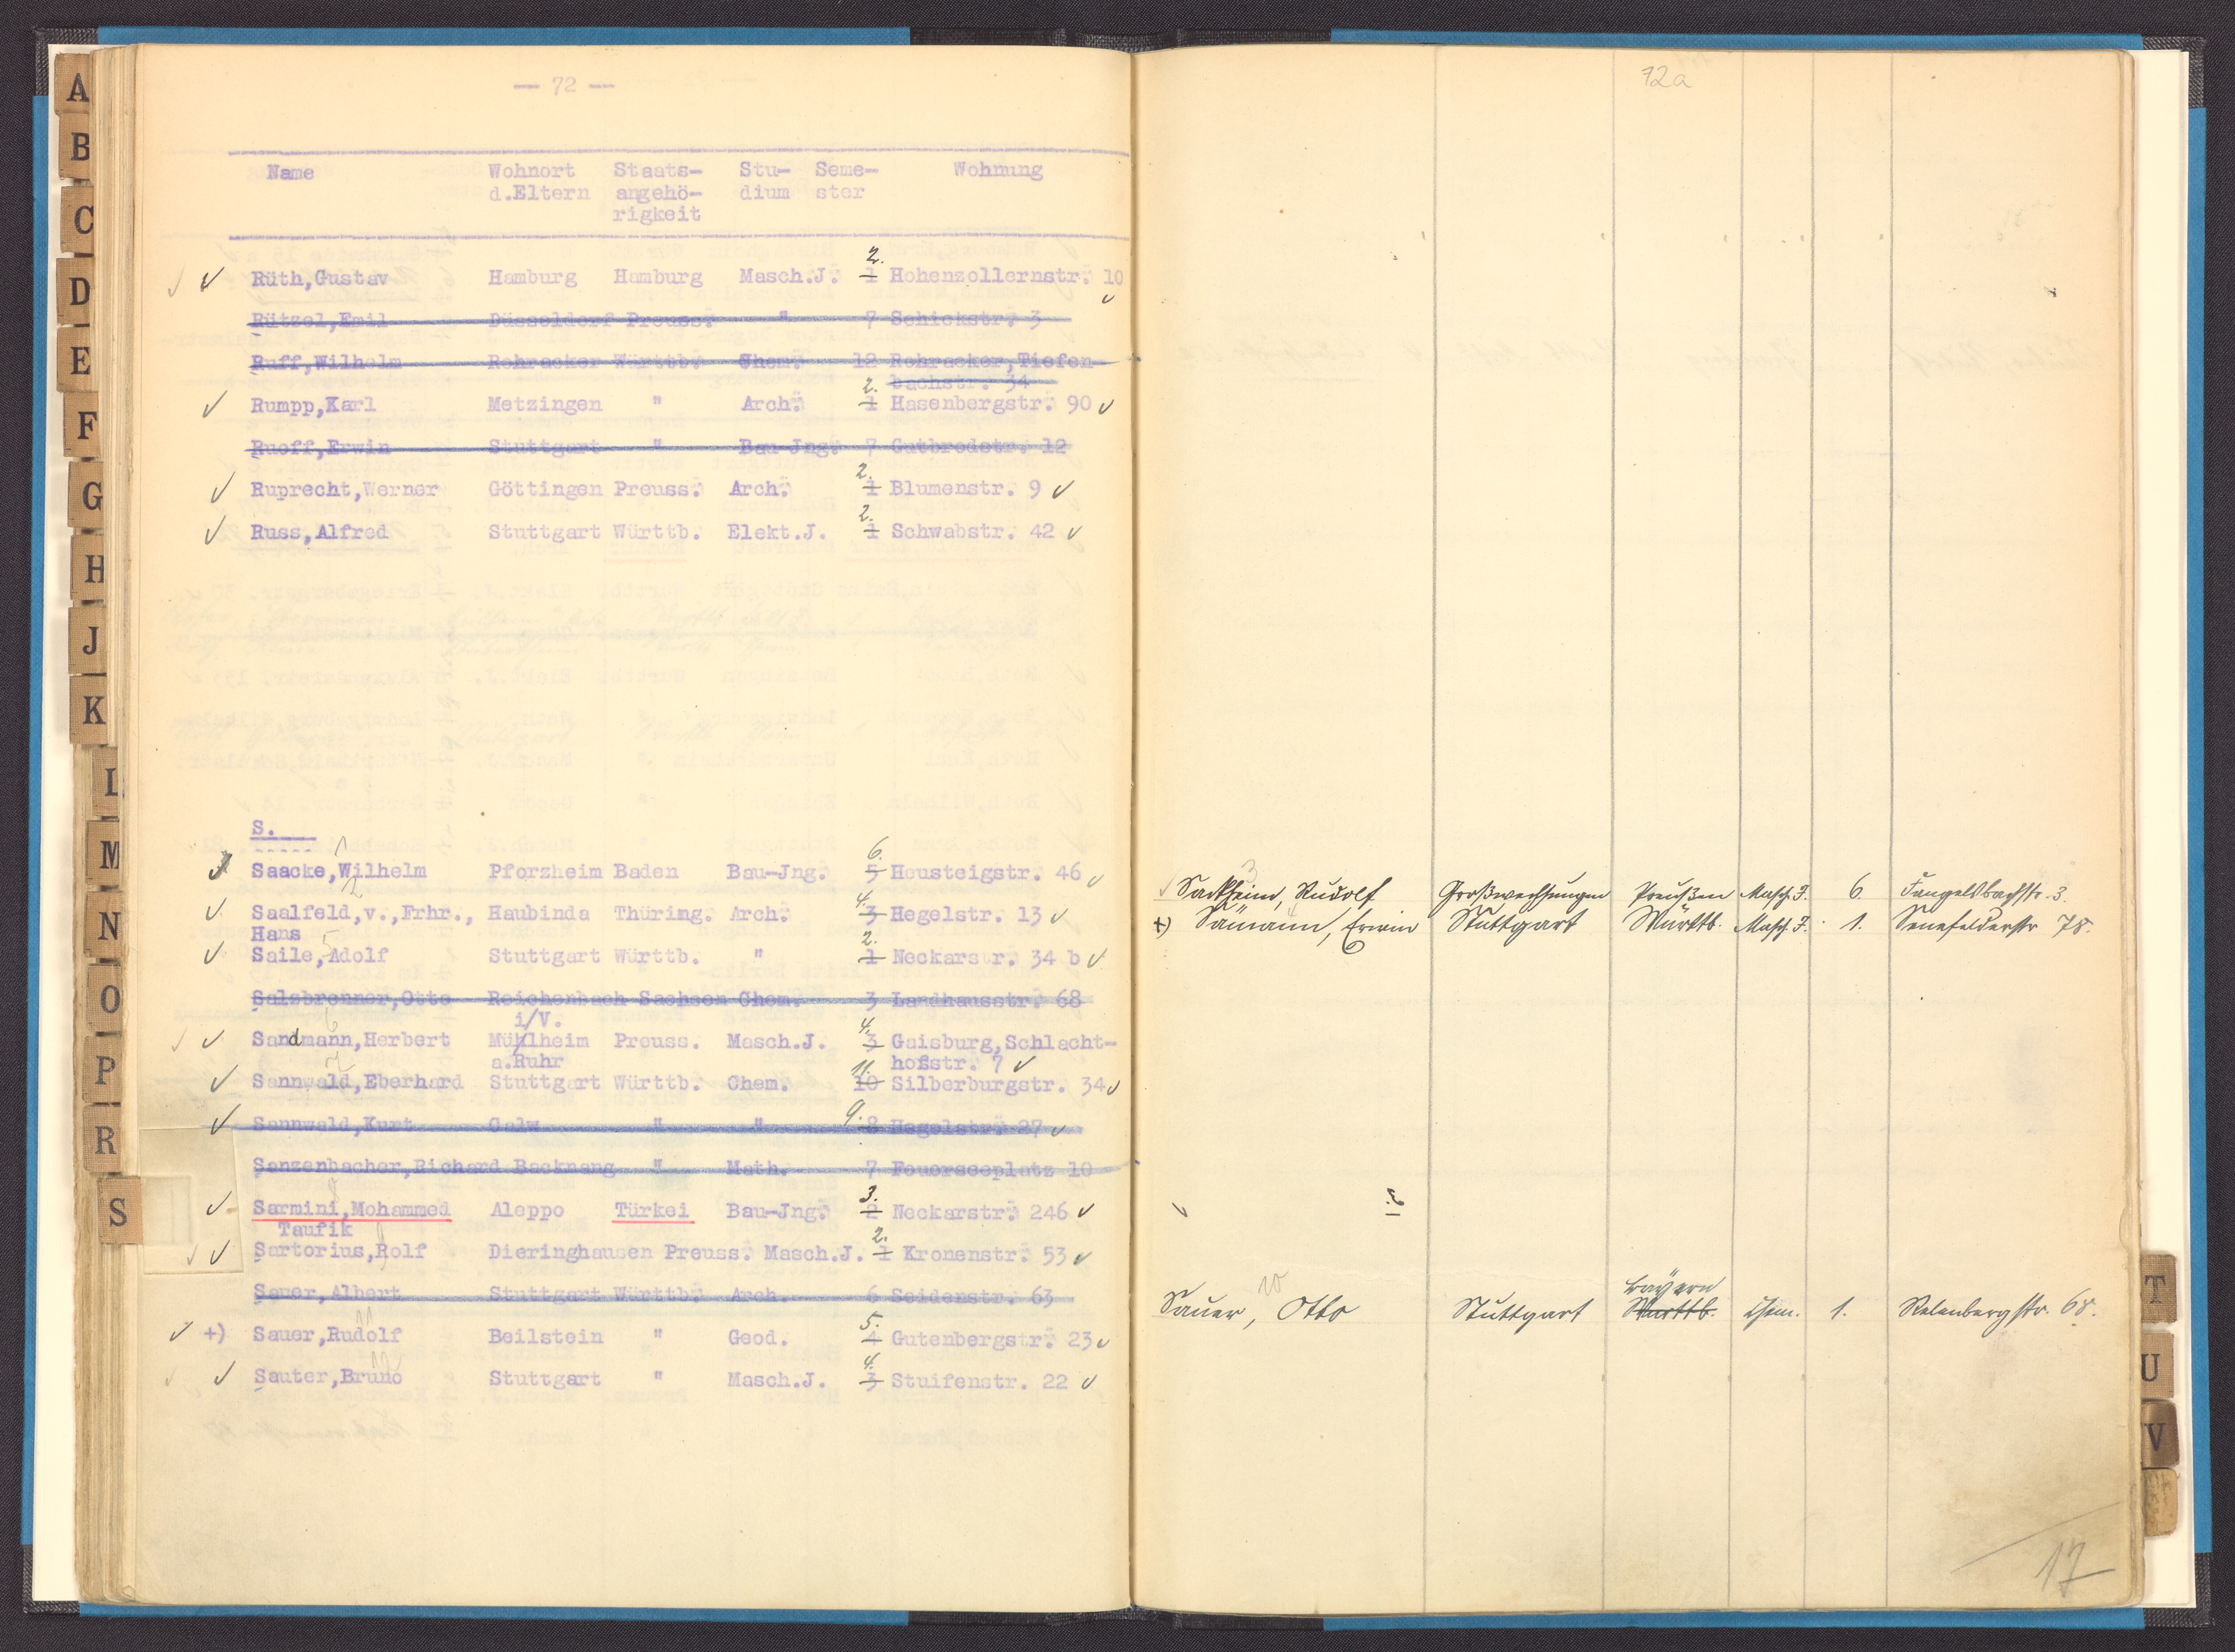 A
B
C
D
E
F
G
H
J
K
L
M
N
O
P
R
S
— 72 —
Name Wohnort Staats- Stu- Seme- Wohnung
d.Eltern angehö- dium ster
rigkeit
2.
Rüth,Gustav Hamburg Hamburg Masch.J. 1 Hohenzollernstr. 10
Rützel,Emil Düsseldorf Preuss. " 7 Schickstr. 3
Ruff,Wilhelm Rohracker Württb. Chem. 12 Rohracker,Tiefen-
2. bachstr. 34
Rumpp,Karl Metzingen " Arch. 1 Hasenbergstr. 90
Ruoff,Erwin Stuttgart " Bau-Jng. 7 Gutbrodstr. 12
2.
Ruprecht,Werner Göttingen Preuss. Arch. 1 Blumenstr. 9
2.
Russ,Alfred Stuttgart Württb. Elekt.J. 1 Schwabstr. 42
S.
1 6.
Saacke,Wilhelm Pforzheim Baden Bau-Jng. 5 Heusteigstr. 46
2 4.
Saalfeld,v.,Frhr., Haubinda Thüring. Arch. 3 Hegelstr. 13
Hans 5 2.
Saile,Adolf Stuttgart Württb. " 1 Neckarstr. 34 b
Salzbrenner,Otto Reichenbach Sachsen Chem. 3 Landhausstr. 68
6 i/V. 4.
Sandmann,Herbert Mühlheim Preuss. Masch.J. 3 Gaisburg,Schlacht-
7 a.Ruhr 11. hofstr. 7
Sannwald,Eberhard Stuttgart Württb. Chem. 10 Silberburgstr. 34
9.
Sannwald,Kurt Calw " " 8 Hegelstr 27
Sanzenbacher,Richard Backnang " Math. 7 Feuerseeplatz 10
8 3.
Sarmini,Mohammed Aleppo Türkei Bau-Jng. 2 Neckarstr. 246
Taufik 9 2.
Sartorius,Rolf Dieringhausen Preuss. Masch.J. 1 Kronenstr. 53
Sauer,Albert Stuttgart Württb. Arch. 6 Seidenstr. 63
11 5.
+) Sauer,Rudolf Beilstein " Geod. 4 Gutenbergstr. 23
12 4.
Sauter,Bruno Stuttgart " Masch.J. 3 Stuifenstr. 22
72a
3
Sackheim, Rudolf Großwechsungen Preußen Masch.J. 6. Fangelsbachstr. 3.
4
+) Sämann, Erwin Stuttgart Württb. Masch.J. 1. Senefelderstr 78.
10 Bayern
Sauer, Otto Stuttgart Württb. Chem. 1. Relenbergstr. 68.
17
T
U
V